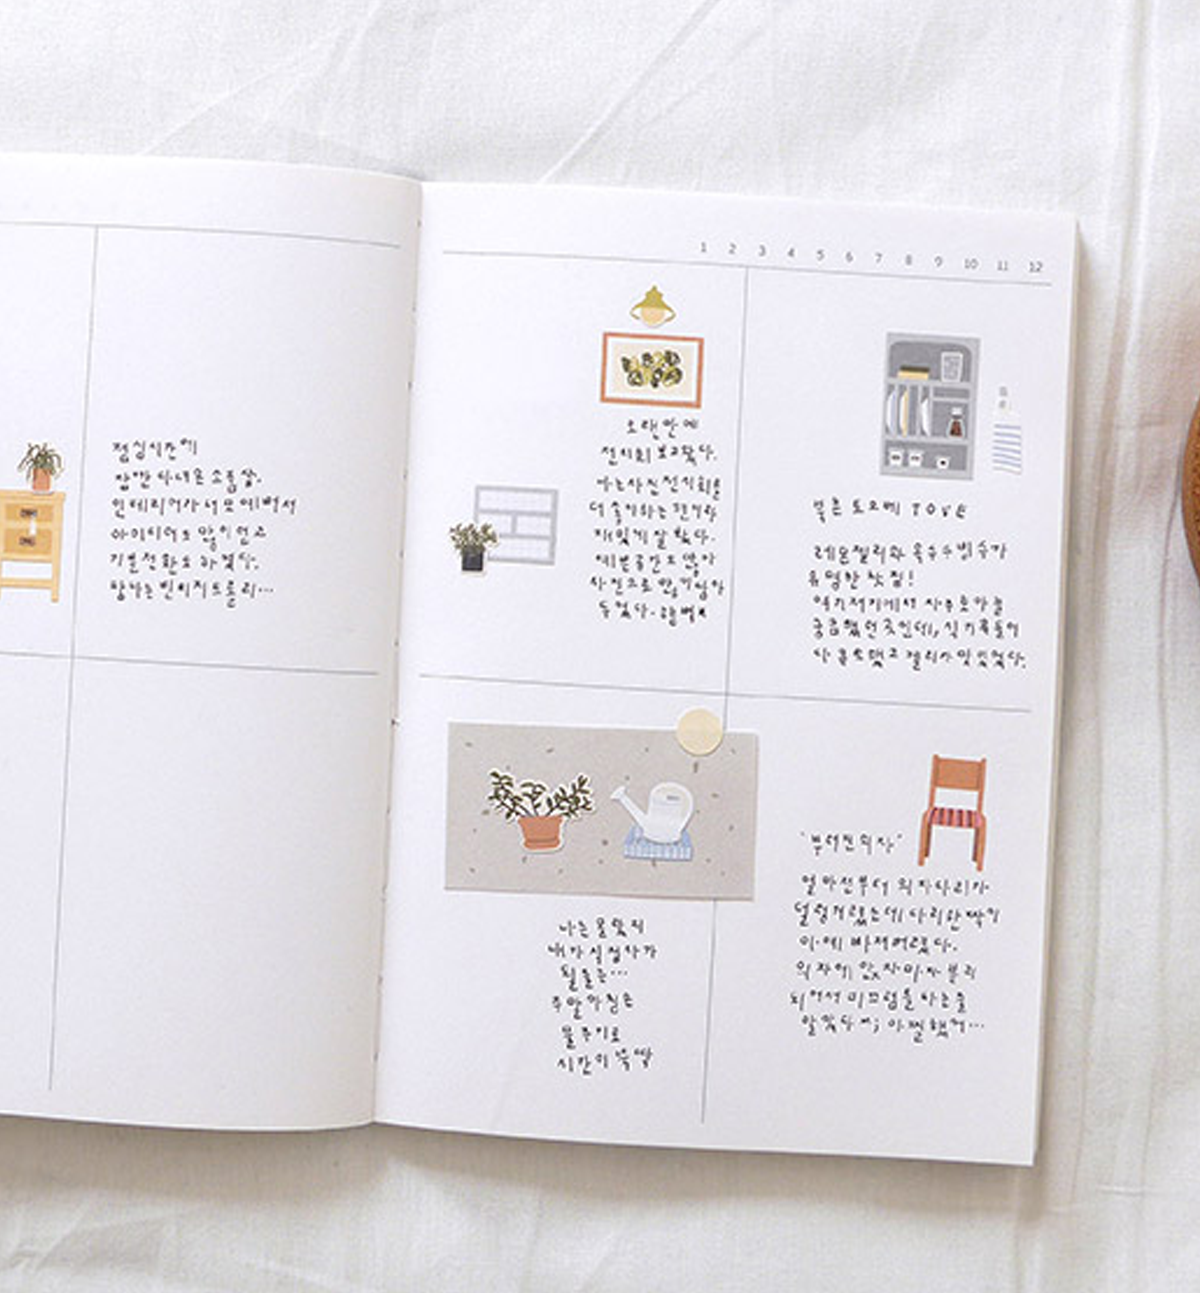 점심시간에
잠깐 다녀온 소품샵.
인테리어가 너무 예뻐서
아이디어도 많이 얻고
기분전환도 하였다.
탐나는 빈티지 트롤리…
1 2 3 4 5 6 7 8 9 10 11 12
오랜만에
전시회 보고왔다.
나는 사진전시회를
더 좋아하는 편이라
재밌게 잘 봤다.
예쁜공간도 많아
사진으로 많이 담아
두었다.
북촌 토오베 TOVE
레몬젤리와 옥수수빙수가
유명한 찻집!
여기저기에서 자주보아늘
궁금했던곳인데, 식기류들이
다 젤리가 맛있었다.
나는 몰랐지
내가 식집사가
될줄은…
주말아침은
물주기로
시간이 뚝딱
"부러진의자"
얼마전부터 의자다리가
덜렁거렸는데 다리한짝이
이내 빠져버렸다.
의자에 앉자마자 분리
되어서 미끄럼틀 타는줄
알았다 ;; 아찔했어…